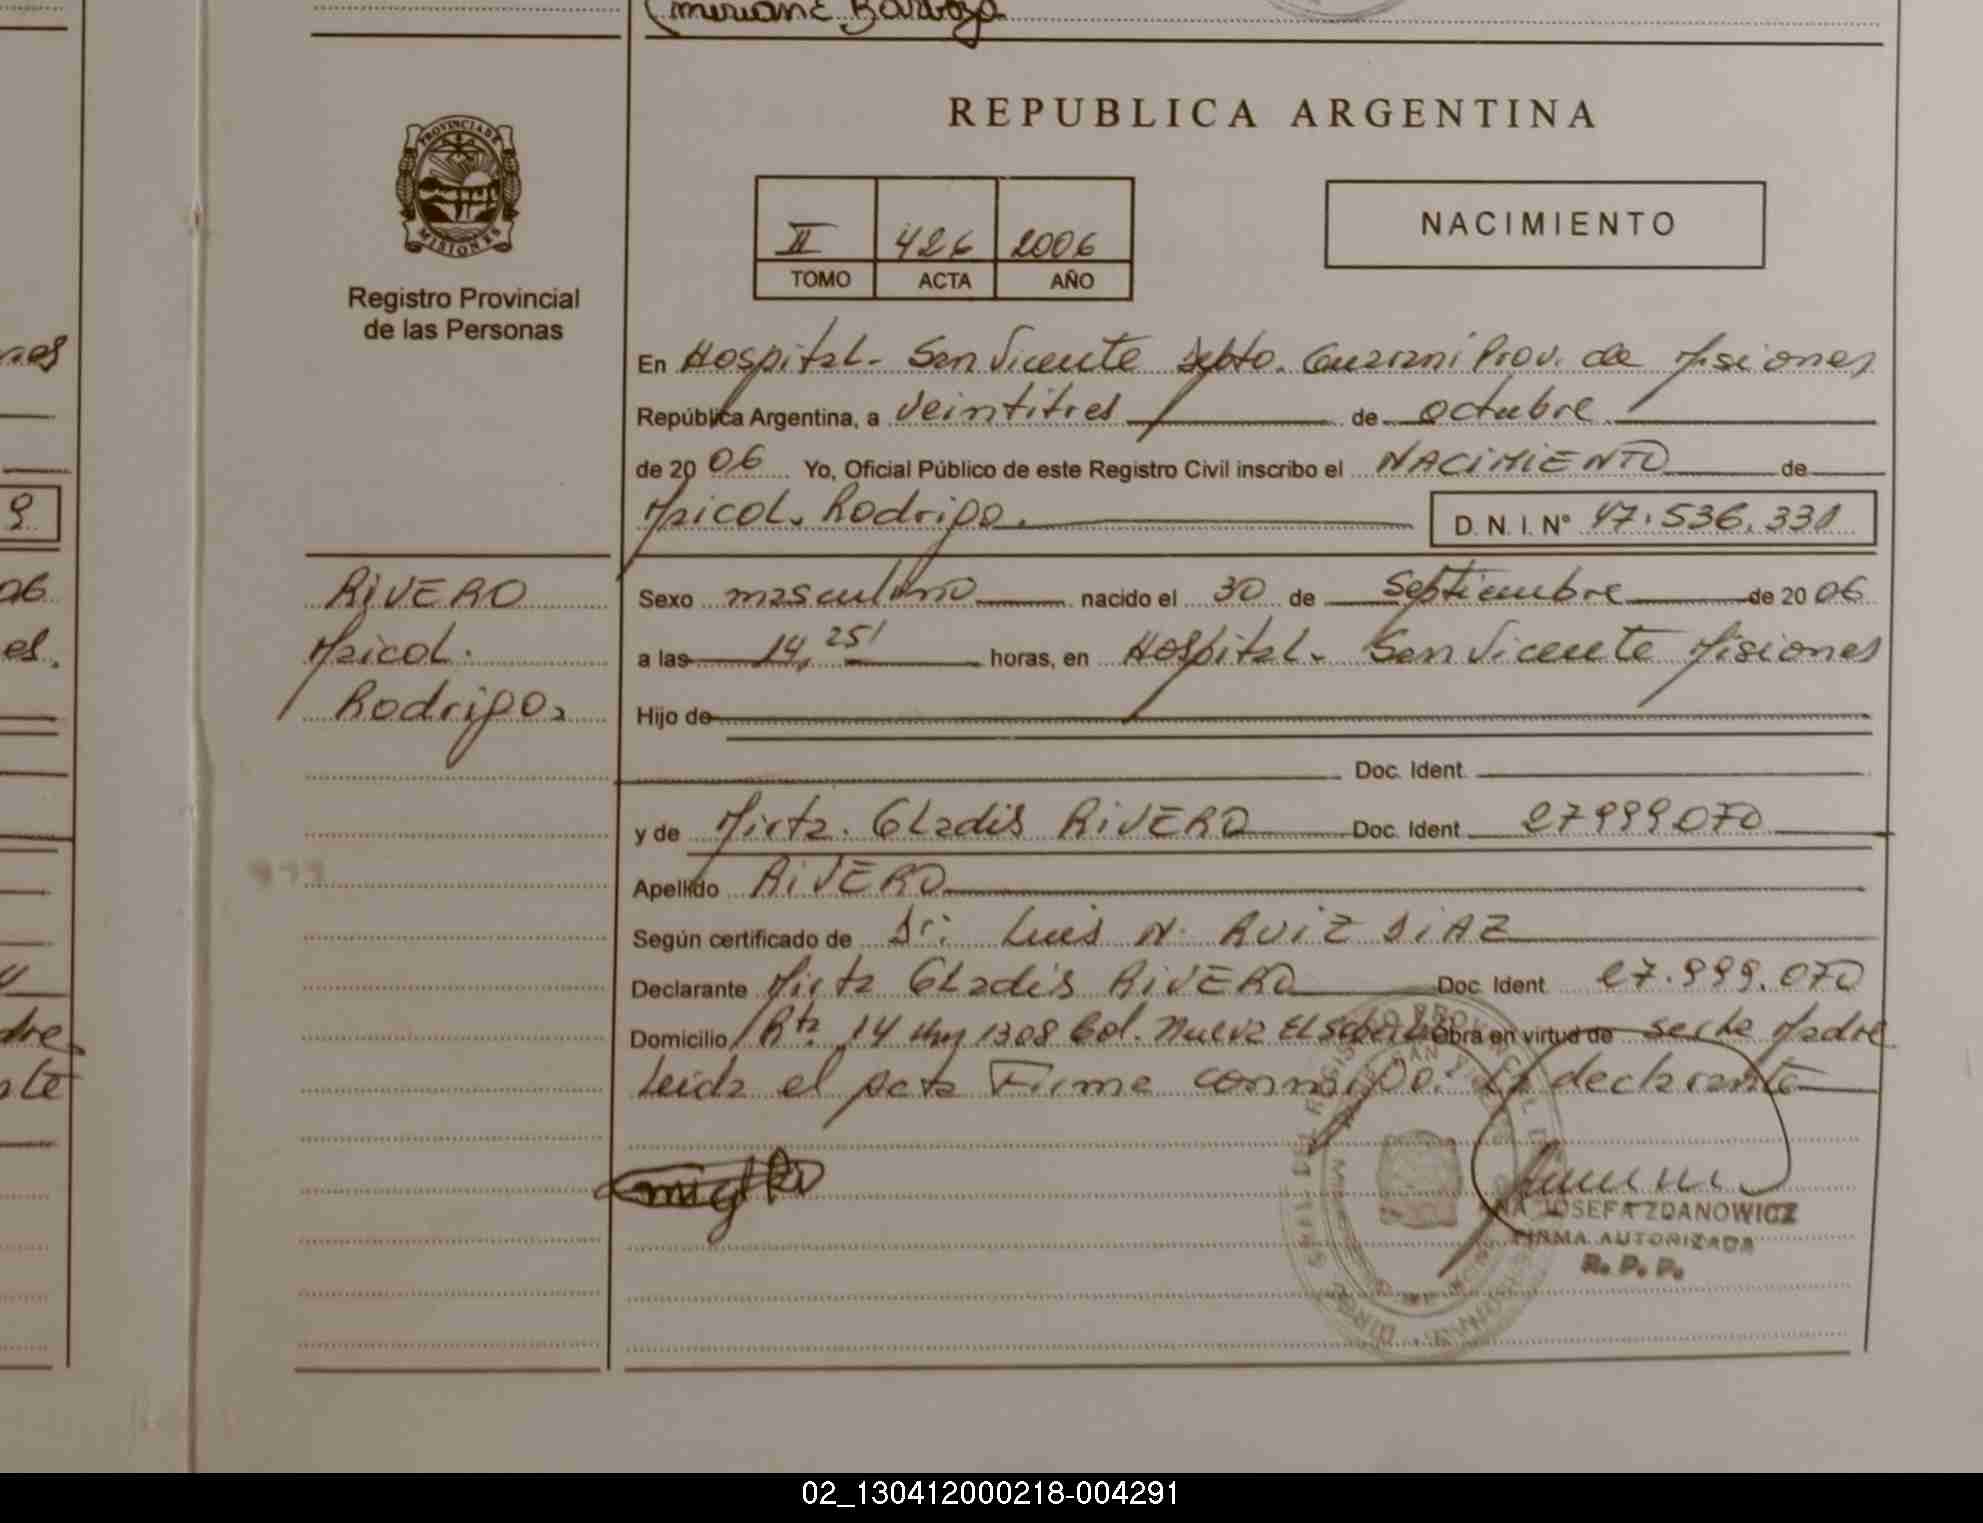 REPUBLICA ARGENTINA
PROVINCIA DE
MISIONES
Registro Provincial
de las Personas
II 426 2006
TOMO ACTA AÑO
NACIMIENTO
En Hospital - San Vicente Dpto. Guarani Prov. de Misiones
República Argentina, a veintitres de octubre
de 2006 Yo, Oficial Público de este Registro Civil inscribo el NACIMIENTO de
Maicol. Rodrigo. D. N. I. N° 47.536.331
RIVERO
Maicol.
Rodrigo.
Sexo masculino nacido el 30 de Septiembre de 2006
a las 14,25' horas, en Hospital - San Vicente Misiones
Hijo de
Doc. Ident.
y de Mirta. Gladis RIVERO Doc. Ident. 27999070
Apellido RIVERO
Según certificado de Dr: Luis N. RUIZ DIAZ
Declarante Mirta Gladis RIVERO Doc. Ident. 27.999.070
Domicilio Rta. 14 Km 1308 Col. Nueva El Soberbio Obra en virtud de ser la Madre
Leida el acta Firma conmigo. La declarante
JOSEFA ZDANOWICZ
FIRMA AUTORIZADA
R. P. P.
02_130412000218-004291